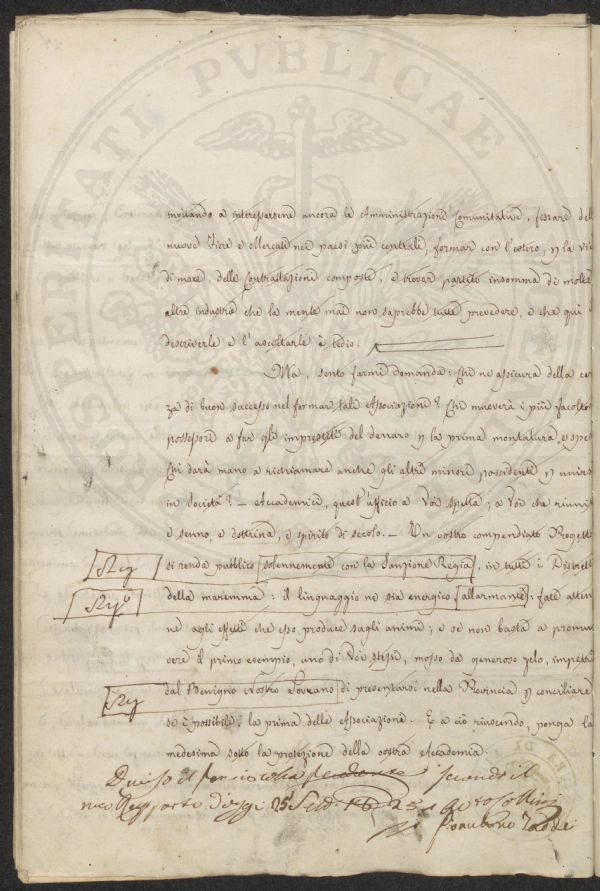 invitando a interessarsene ancora le Amministrazioni Comunitative, fissare dell
nuove Fiere e Mercati nei paesi più centrali, formar con l'estero, p la via
di mare, delle Contrattazioni composte, e trovar partito insomma di molte
altre industrie che la mente mia non saprebbe tutte prevedere, e che qui
descriverle e l'ascoltarle è tedio.
Ma, sento farmi domanda: Chi ne assicura della cer
za di buon successo nel formar tali Associazioni? Chi muoverà i più facolto
possessori a far gli imprestiti del denaro p la prima montatura, e spe
Chi darà mano a richiamare anche gli altri minori possidenti p unirs
in Società? — Accademici, quest'uffizio a Voi spetta; a Voi che riunit
e senno, e dottrina, e spirito di secolo. — Un vostro compendiato Progetto
si renda pubblico solennemente con la Sanzione Regia, in tutti i Distretti
della maremma: il linguaggio ne sia energico allarmante: fate atten
ne agli effetti che esso produce sugli animi; e se non basta a promu
vere il primo esempio, uno di Voi stessi, mosso da generoso zelo, impetri
dal Benigno Nostro Sovrano di presentarsi nella Provincia p conciliare
se è possibile, la prima delle Associazioni. E a ciò riuscendo, ponga la
medesima sotto la protezione della vostra Accademia.
secondo il
mio Rapporto d'oggi 25 Sett.
Taddei
PROSPERITATI PVBLICAE